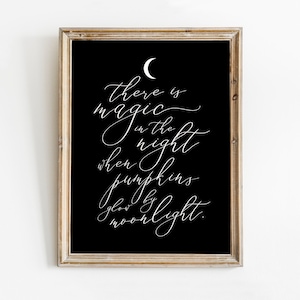 there is
magic
in the
night
when
pumpkins
glow by
moonlight.